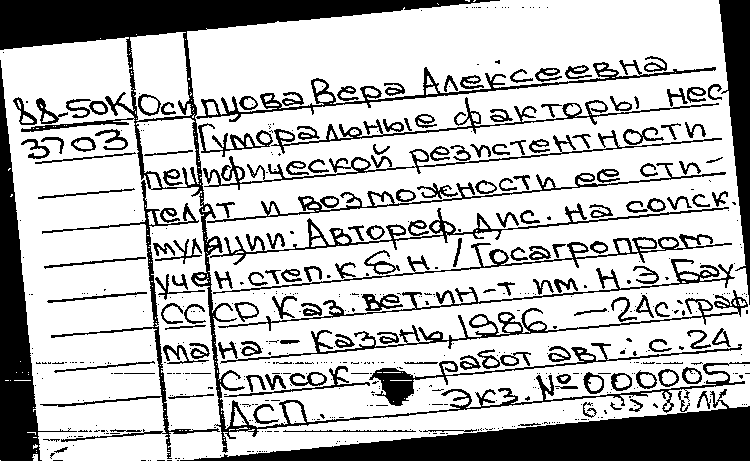 88-50К Осипцова, Вера Алексеевна.
3703 Гуморальные факторы нес-
пецифической резистентности
телят и возможности ее сти-
муляции: Автореф. дис. на соиск.
учен. степ. к.б.н. / Госагропром
СССР, Каз. вет. ин-т им. Н.Э. Бау-
мана. - Казань, 1986. - 24с.: граф.
Список работ авт.: с. 24.
ДСП. Экз. № 000005.
6.05.88 ЛК